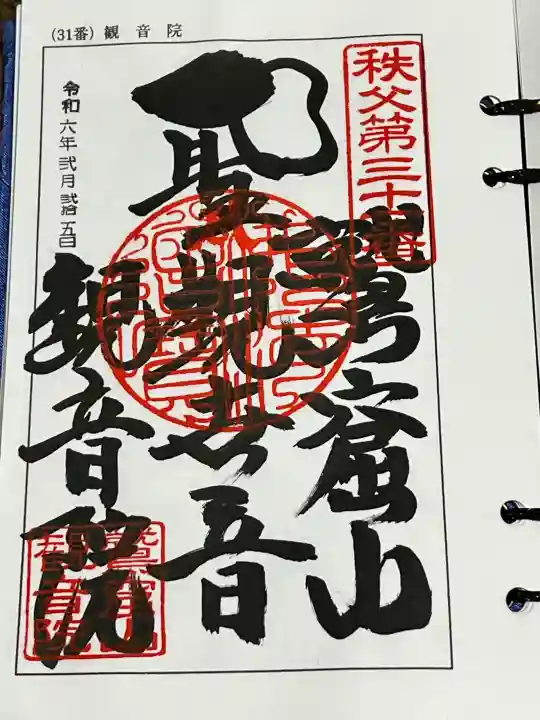 (31番) 観音院
秩父第三十一番
鷲窟山
聖観世音
観音院
令和六年弐月弐拾五日